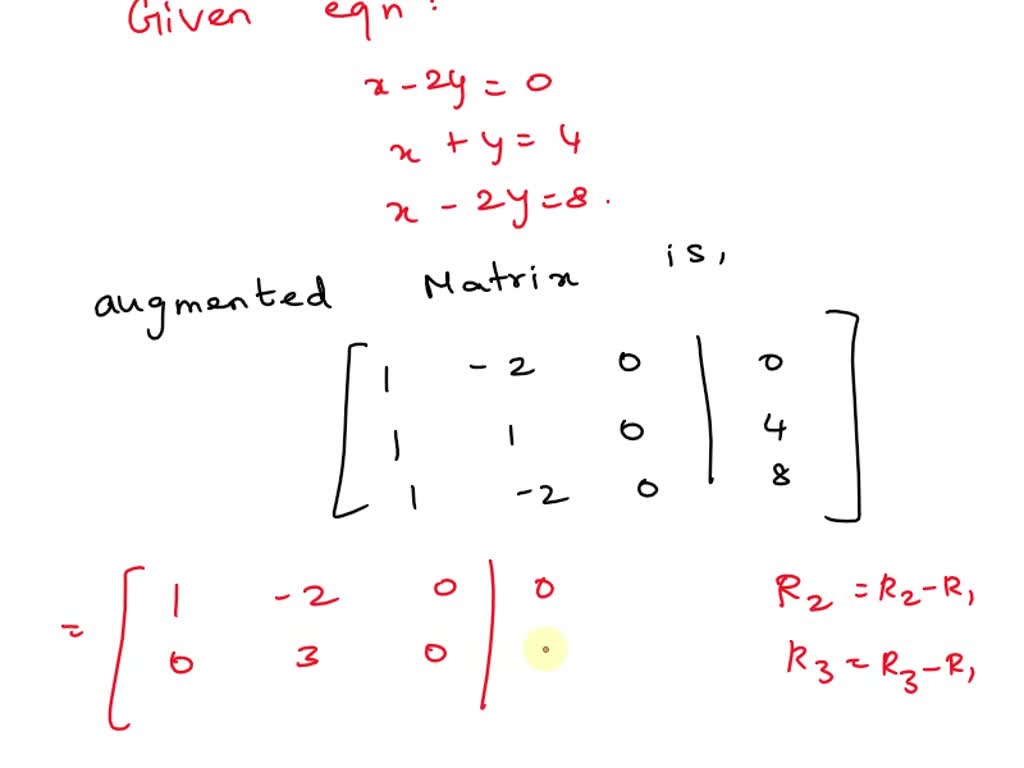 Given eqn:
x - 2y = 0
x + y = 4
x - 2y = 8.
augmented Matrix is,
[ 1 -2 0 | 0
1 1 0 | 4
1 -2 0 | 8 ]
= [ 1 -2 0 | 0 R2 = R2 - R1
0 3 0 | R3 = R3 - R1